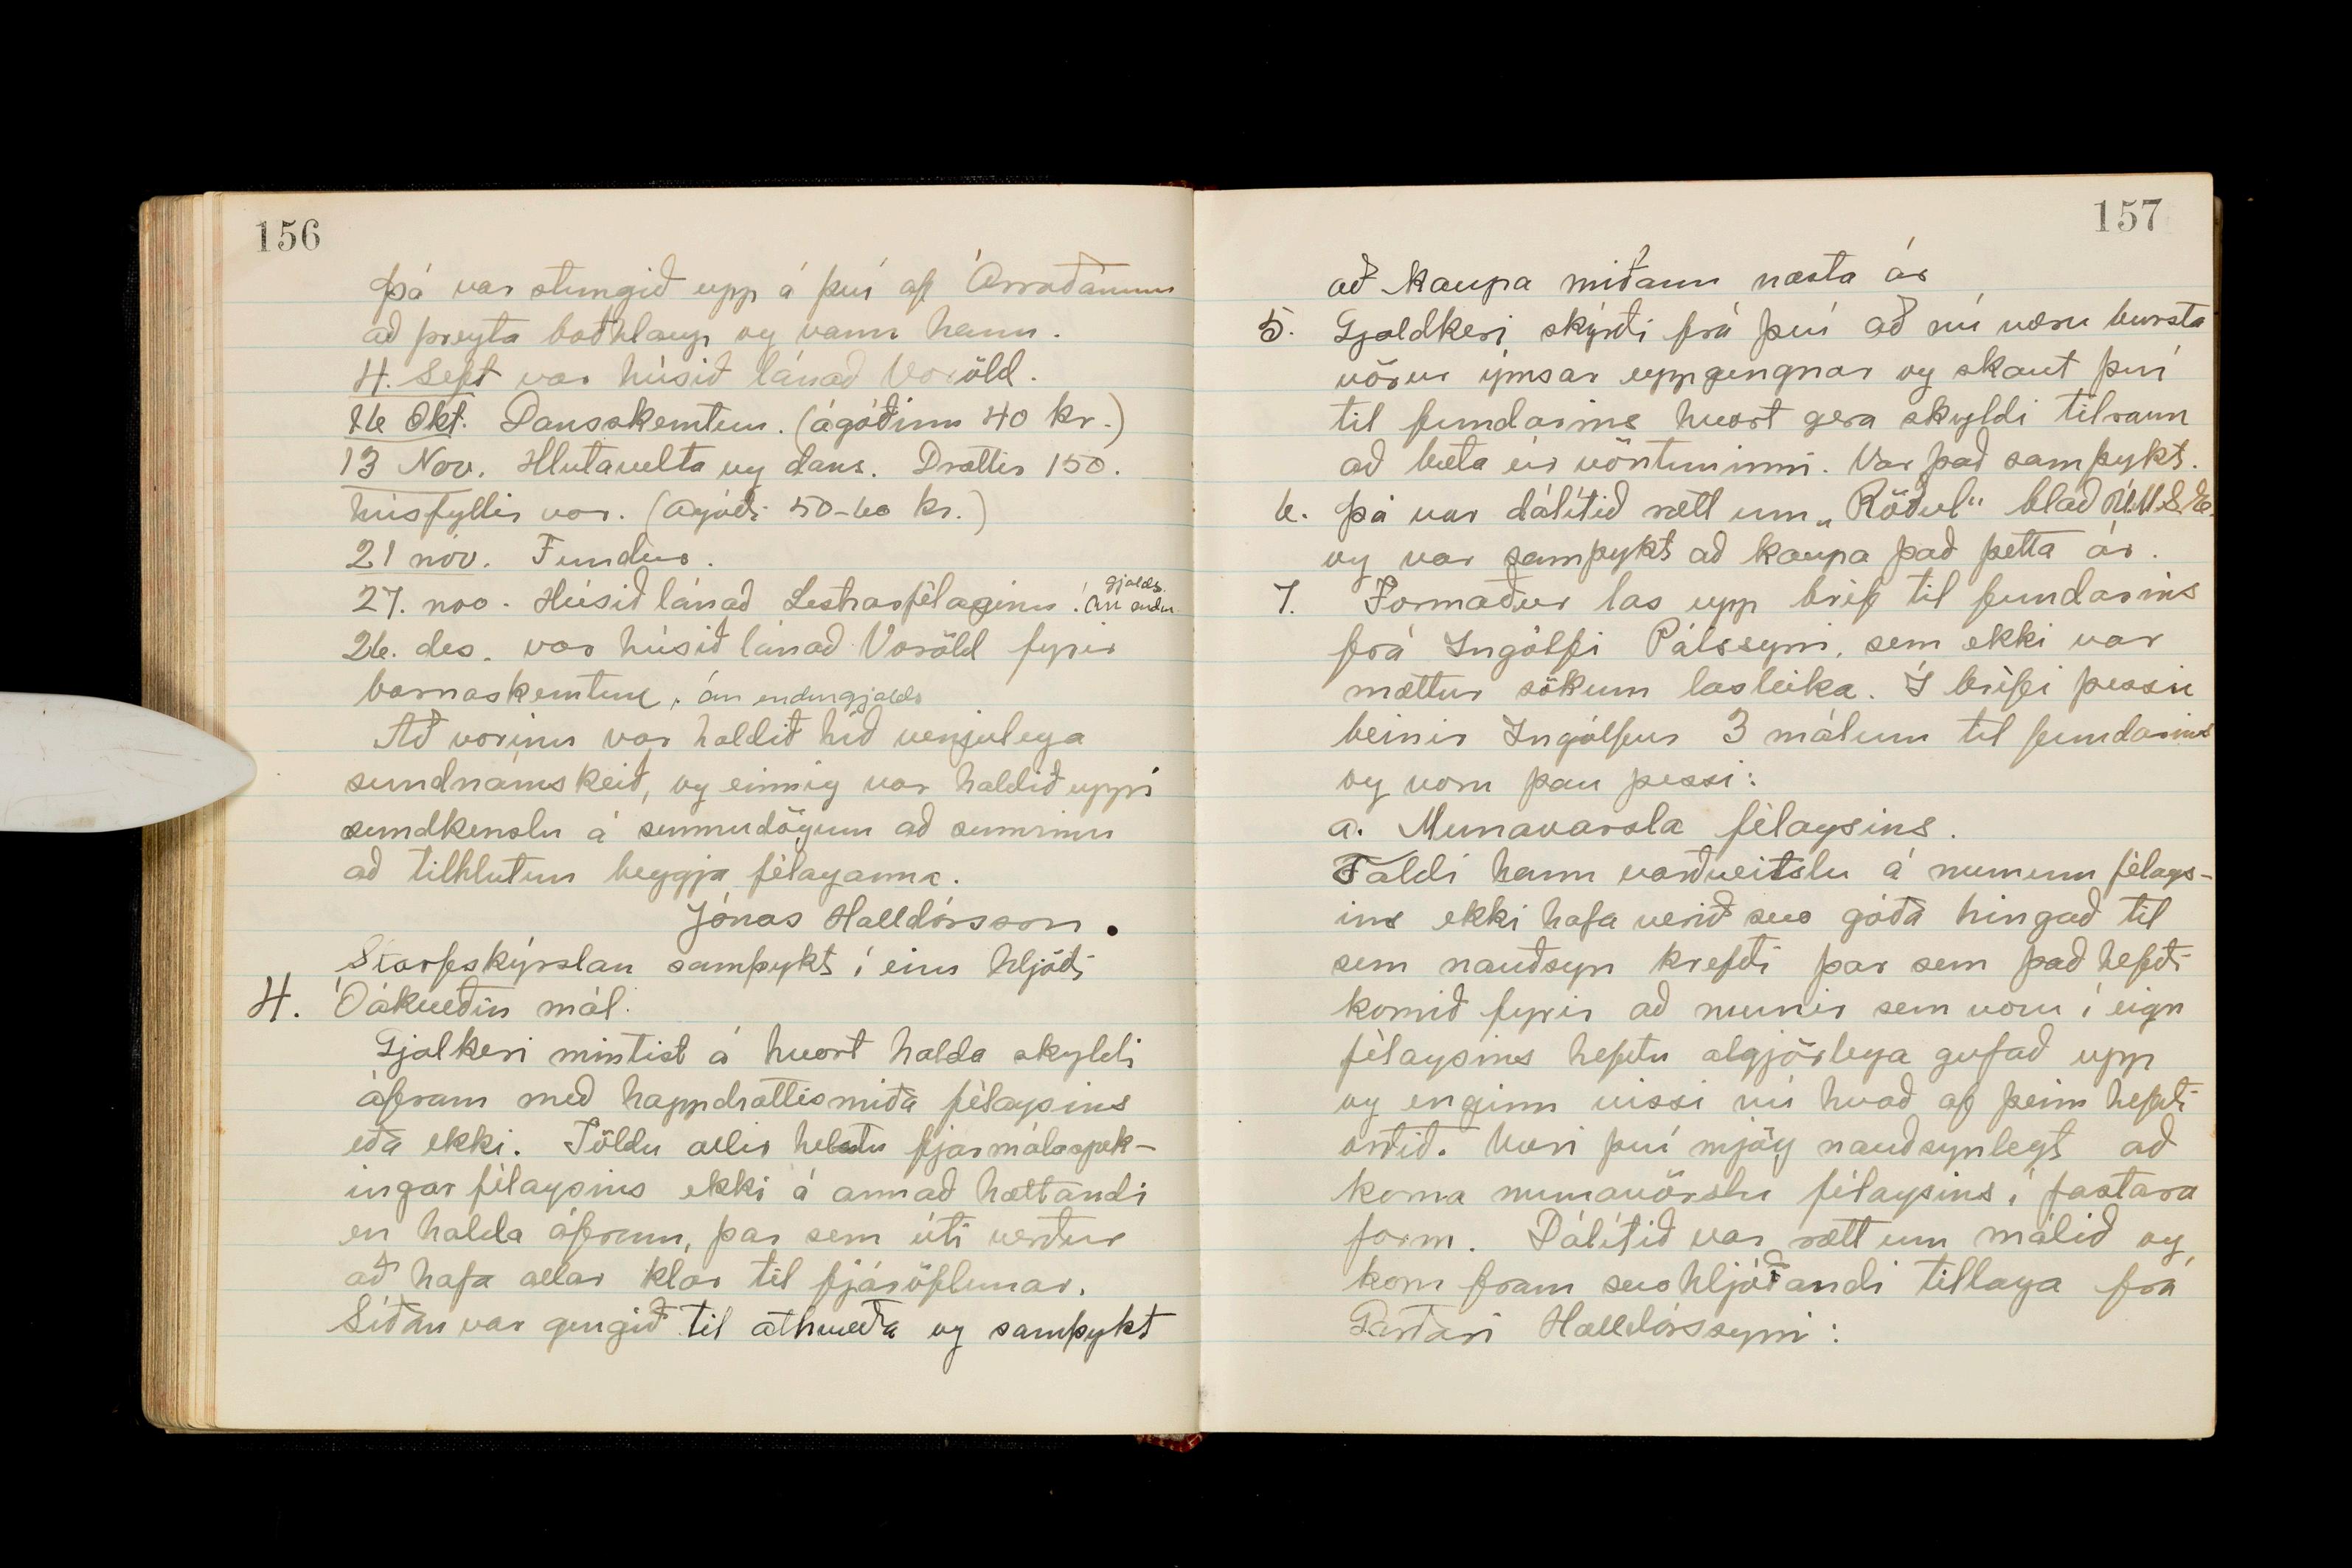 156
Þá var stungið upp á því af Árroðanum
að þreyta boðhlaup og vann hann.
4. Sept var húsið lánað Voröld.
26 Okt. Dansskemtun. (ágóðinn 40 kr.)
13 Nov. Hlutavelta og dans. Drættir 150.
húsfyllir var. (Ágóði 50-60 kr.)
21 nóv. Fundur.
27. nov. Húsið lánað Lestrarfélaginu. án endur
gjalds.
26. des. var húsið lánað Voröld fyrir
barnaskemtun, án endurgjalds
Að vorinu var haldið hið venjulega
sundnámskeið, og einnig var haldið uppi
sundkenslu á sunnudögum að sumrinu
að tilhlutun beggja félaganna.
Jónas Halldórsson.
Starfskýrslan samþykt í einu hljóði
4. Óákveðin mál.
Gjalkeri mintist á hvort halda skyldi
áfram með happdrættismiða félagsins
eða ekki. Töldu allir helstu fjármálaspek-
ingar félagsins ekki á annað hættandi
en halda áfram, þar sem úti verður
að hafa allar klær til fjáröflunar.
Síðan var gengið til athvæða og samþykt
157
að kaupa miðann næsta ár
5. Gjaldkeri skýrði frá því að nú væru bursta
vörur ýmsar uppgengnar og skaut því
til fundarins hvort gera skyldi tilraun
að bæta úr vöntuninni. Var það samþykt.
6. Þá var dálítið rætt um „Röðul" blað U.M.S.E.
og var samþykt að kaupa það þetta ár.
7. Formaður las upp bréf til fundarins
frá Ingólfi Pálssyni, sem ekki var
mættur sökum lasleika. Í bréfi þessu
beinir Ingólfur 3 málum til fundarins
og voru þau þessi:
a. Munavarsla félagsins.
Taldi hann varðveitslu á munum félags-
ins ekki hafa verið svo góða hingað til
sem nauðsyn krefði þar sem það hefði
komið fyrir að munir sem voru í eign
félagsins hefðu algjörlega gufað upp
og enginn vissi nú hvað af þeim hefði
orðið. Væri því mjög nauðsynlegt að
koma munavörslu félagsins í fastara
form. Dálítið var rætt um málið og
kom fram svohljóðandi tillaga frá
Garðari Halldórssyni: